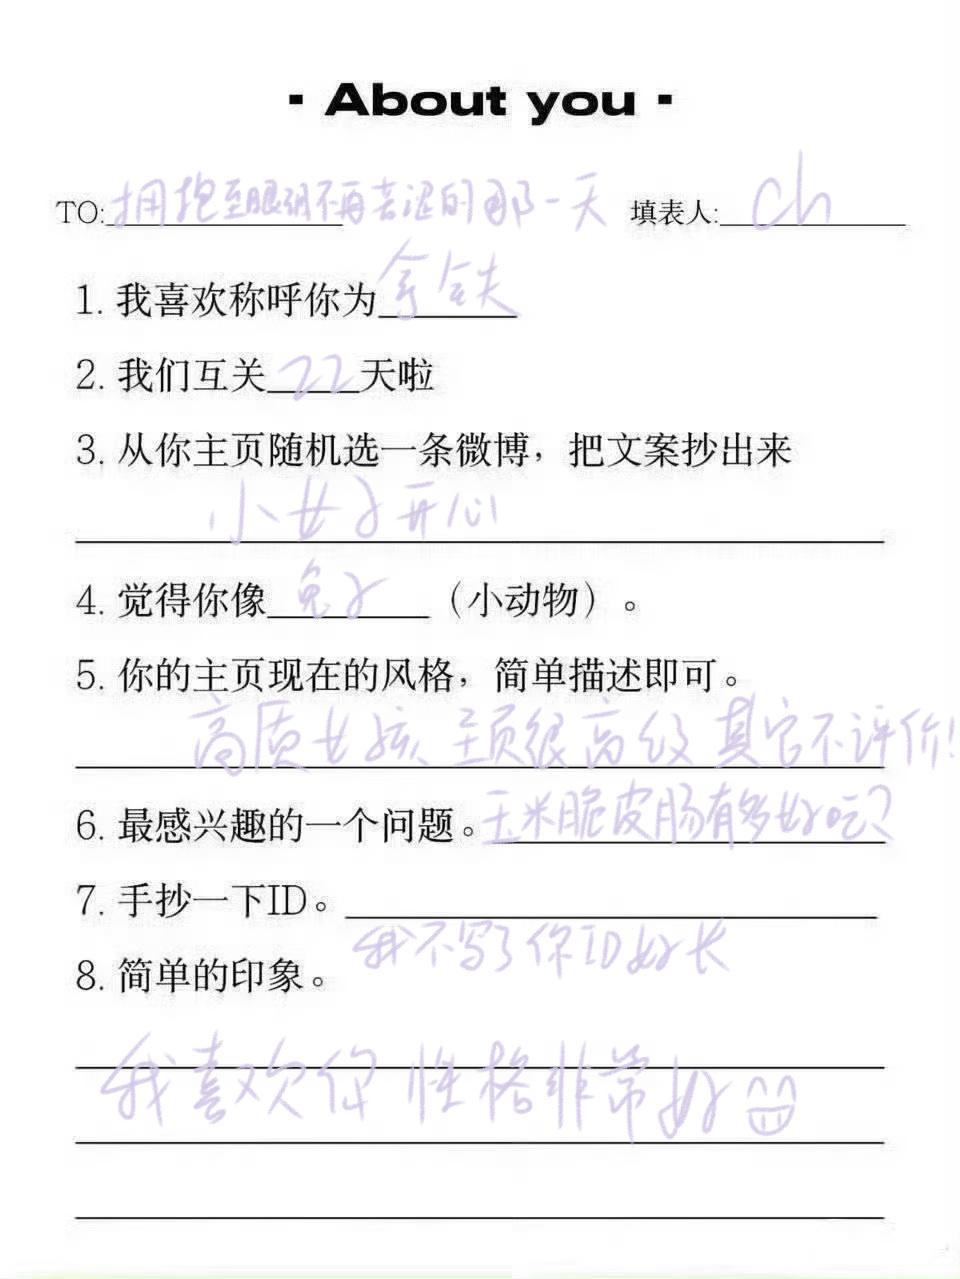 · About you ·
TO: 拥抱至眼泪不再苦涩的那一天 填表人: ch
1. 我喜欢称呼你为拿铁
2. 我们互关22天啦
3. 从你主页随机选一条微博，把文案抄出来
小女子开心
4. 觉得你像兔子（小动物）。
5. 你的主页现在的风格，简单描述即可。
高质女孩 主页很高级 其它不评价!
6. 最感兴趣的一个问题。玉米脆皮肠有多好吃?
7. 手抄一下ID。
我不写了你ID好长
8. 简单的印象。
我喜欢你 性格非常好